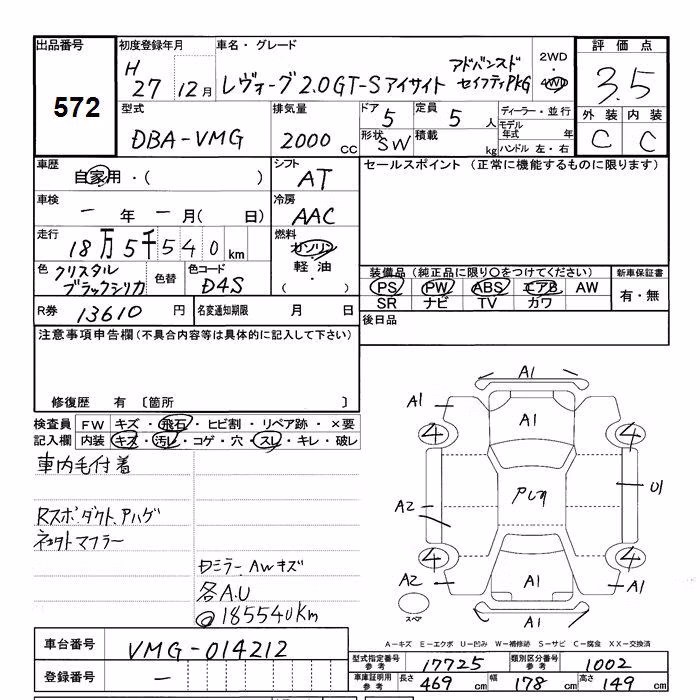 出品番号
572
初度登録年月
H 27 12月
車名・グレード
レヴォーグ 2.0GT-S アイサイト アドバンスド セイフティPKG
2WD
・
4WD
評価点
3.5
外装 内装
C C
型式
DBA-VMG
排気量
2000 CC
ドア
5
定員
5 人
形状
SW
積載
kg
ディーラー・並行
モデル年式 年
ハンドル 左・右
車歴
自家用・( )
シフト
AT
セールスポイント (正常に機能するものに限ります)
車検
ー 年 ー 月( 日)
冷房
AAC
走行
18万5千540km
燃料
ガソリン
軽油
・( )
色
クリスタルブラックシリカ
色替
色コード
D4S
装備品 (純正品に限り○をつけてください)
PS PW ABS エアB AW
SR ナビ TV カワ
新車保証書
有・無
R券
13610 円
名変通知期限
月 日
後日品
注意事項申告欄(不具合内容等は具体的に記入して下さい)
修復歴 有 〔箇所 〕
検査員
記入欄
FW キズ・飛石・ヒビ割・リペア跡・×要
内装 キズ・汚レ・コゲ・穴・スレ・キレ・破レ
車内毛付着
Rスポ.ダクト.Aハゲ
マフラー
ミラー.AWキズ
各A.U
@185540Km
A1
A1
A1
4
4
A2
U1
4
4
A2
A1
A1
A1
スペア
A-キズ E-エクボ U-凹み W-補修跡 S-サビ C-腐食 XX-交換済
車台番号
VMG-014212
登録番号
ー
型式指定番号
参考
17725
類別区分番号
参考
1002
車庫証明用
参考
長さ 469 cm 幅 178 cm 高さ 149 cm